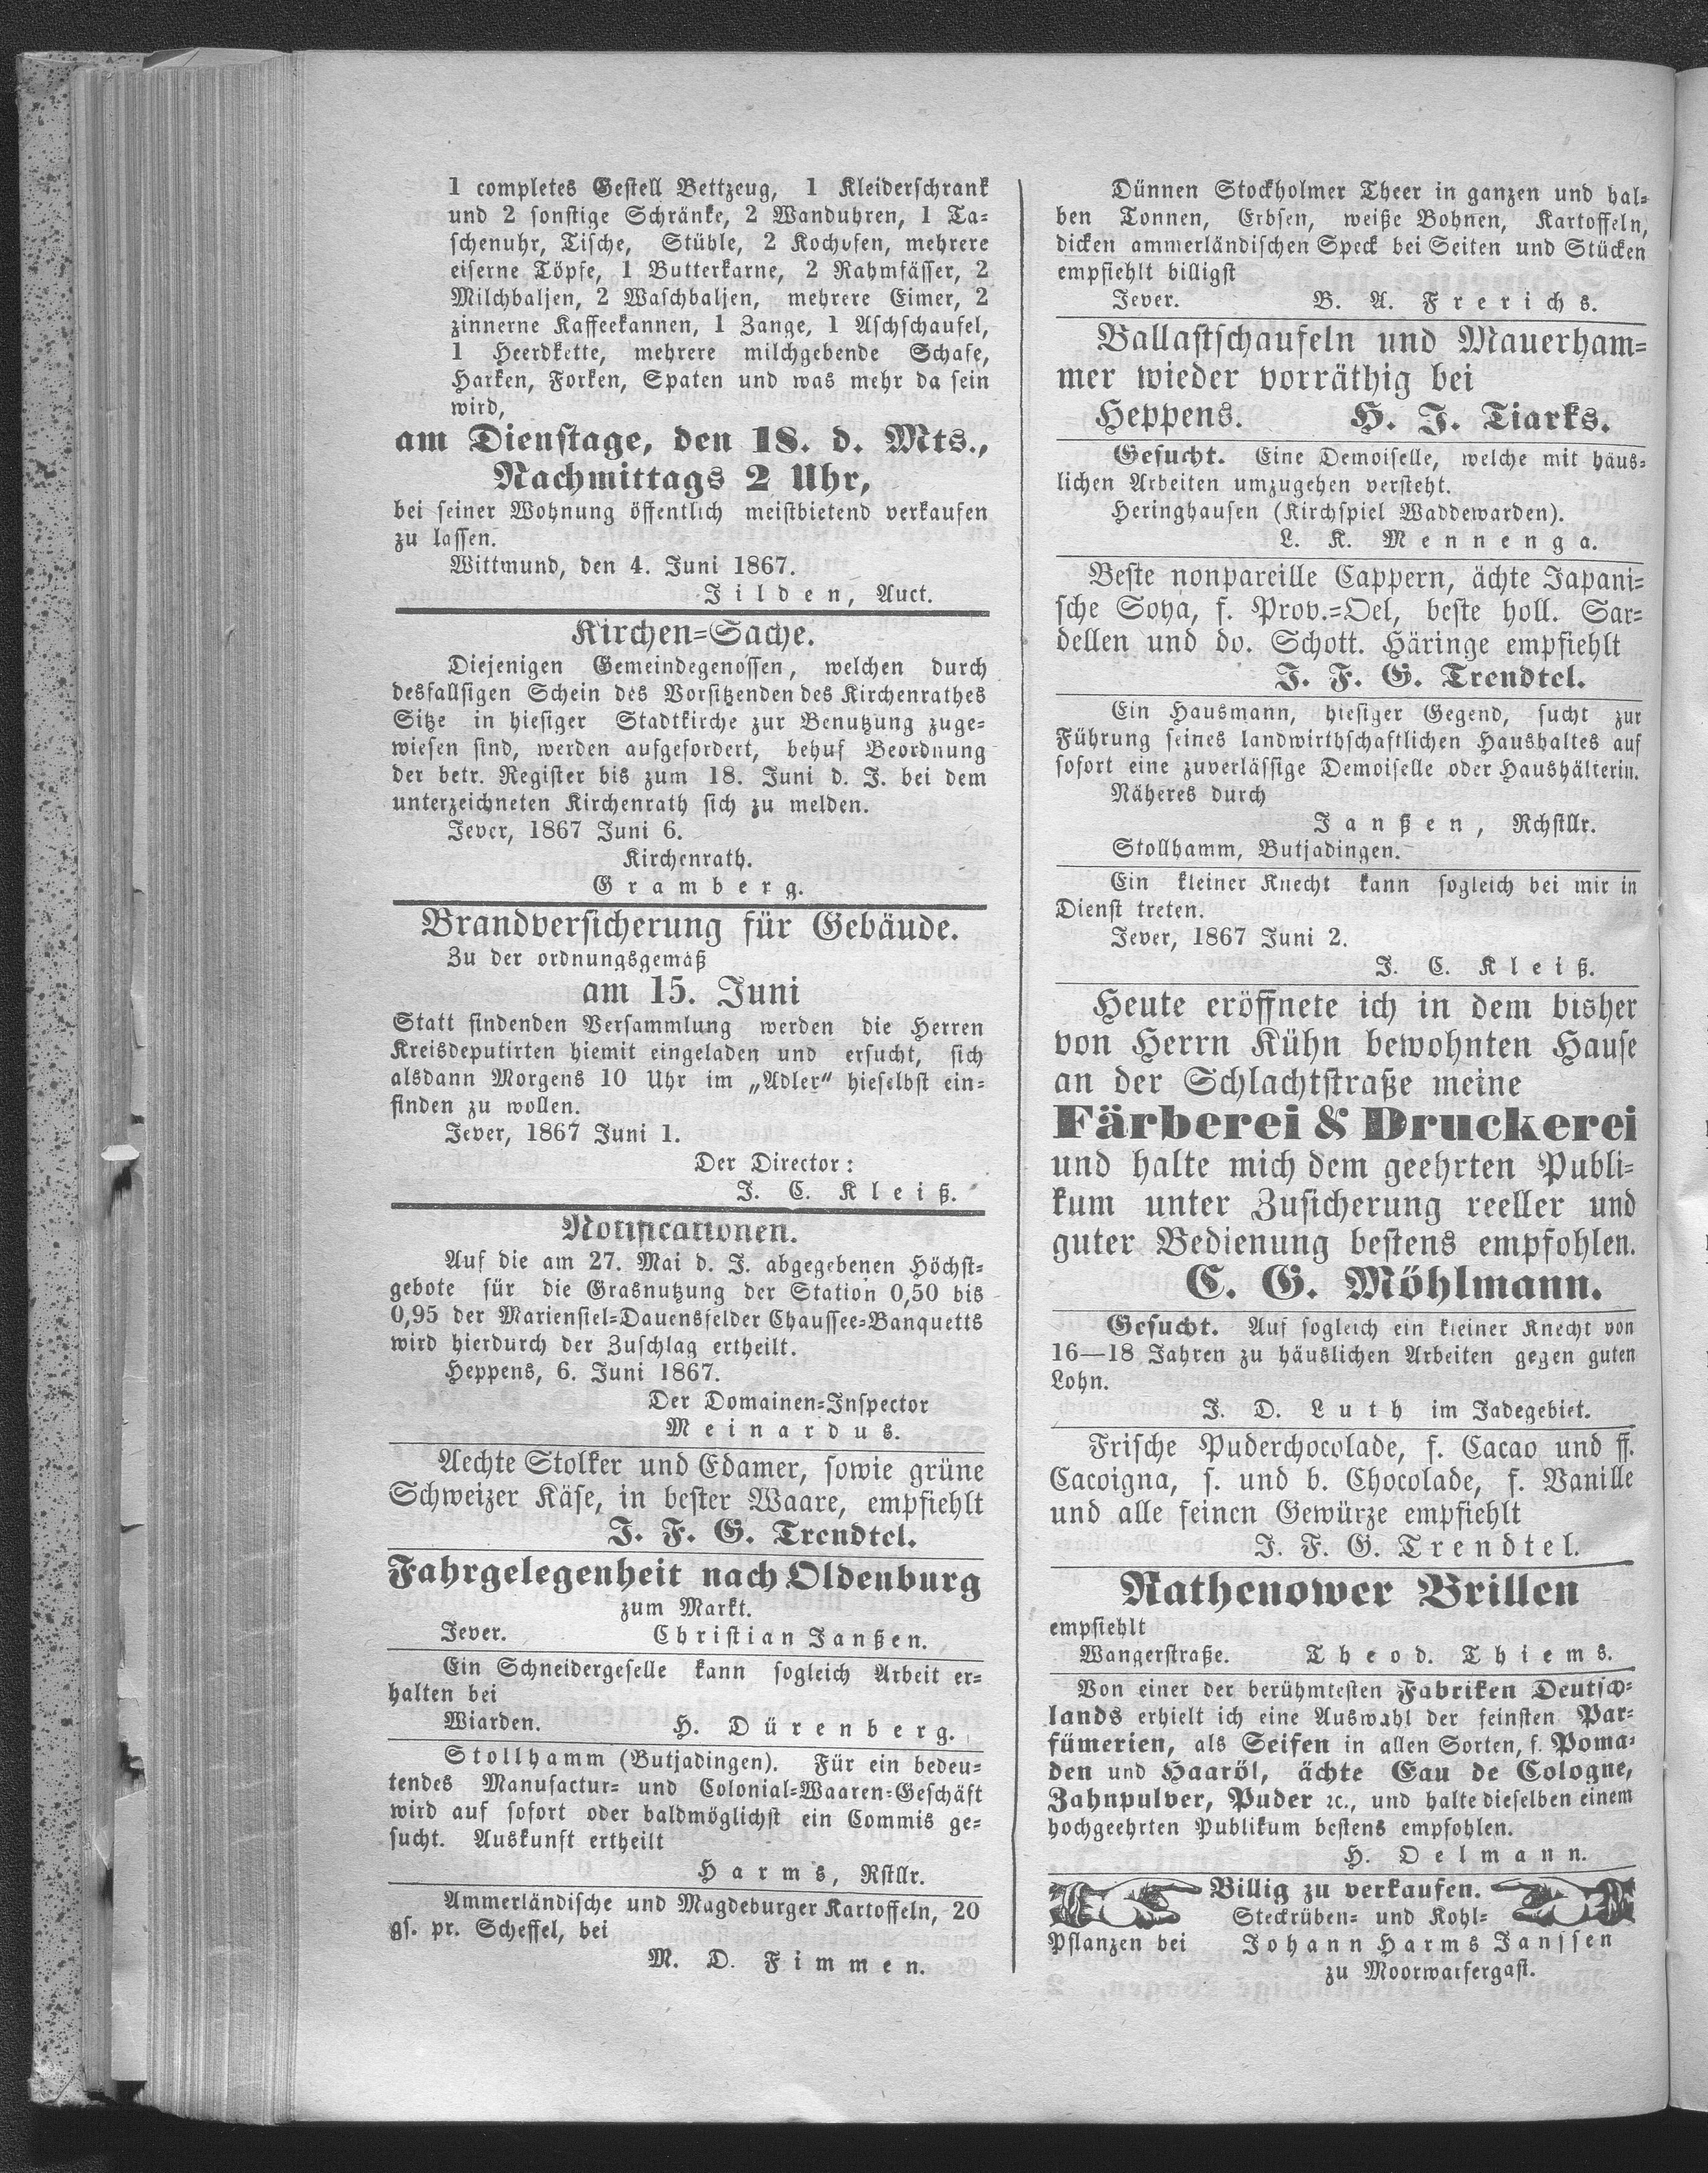 1 completes Gestell Bettzeug, 1 Kleiderschrank
und 2 sonstige Schränke, 2 Wanduhren, 1 Ta-
schenuhr, Tische, Stühle, 2 Kochofen, mehrere
eiserne Töpfe, 1 Butterkarne, 2 Rahmfässer, 2
Milchbaljen, 2 Waschbaljen, mehrere Eimer, 2
zinnerne Kaffeekannen, 1 Zange, 1 Aschschaufel,
1 Heerdkette, mehrere milchgebende Schafe,
Harken, Forken, Spaten und was mehr da sein
wird,
am Dienstage, den 18. d. Mts.,
Nachmittags 2 Uhr,
bei seiner Wohnung öffentlich meistbietend verkaufen
zu lassen.
Wittmund, den 4. Juni 1867.
Jilden, Auct.
Kirchen-Sache.
Diejenigen Gemeindegenossen, welchen durch
desfallsigen Schein des Vorsitzenden des Kirchenrathes
Sitze in hiesiger Stadtkirche zur Benutzung zuge-
wiesen sind, werden aufgefordert, behuf Beordnung
der betr. Register bis zum 18. Juni d. J. bei dem
unterzeichneten Kirchenrath sich zu melden.
Jever, 1867 Juni 6.
Kirchenrath.
Gramberg.
Brandversicherung für Gebäude.
Zu der ordnungsgemäß
am 15. Juni
Statt findenden Versammlung werden die Herren
Kreisdeputirten hiemit eingeladen und ersucht, sich
alsdann Morgens 10 Uhr im „Adler“ hieselbst ein-
finden zu wollen.
Jever, 1867 Juni 1.
Der Director:
J. C. Kleiß.
Notificationen.
Auf die am 27. Mai d. J. abgegebenen Höchst-
gebote für die Grasnutzung der Station 0,50 bis
0,95 der Mariensiel-Dauensfelder Chaussee-Banquetts
wird hierdurch der Zuschlag ertheilt.
Heppens, 6. Juni 1867.
Der Domainen-Inspector
Meinardus.
Aechte Stolker und Edamer, sowie grüne
Schweizer Käse, in bester Waare, empfiehlt
J. F. G. Trendtel.
Fahrgelegenheit nach Oldenburg
zum Markt.
Jever. Christian Janßen.
Ein Schneidergeselle kann sogleich Arbeit er-
halten bei
Wiarden. H. Dürenberg.
Stollhamm (Butjadingen). Für ein bedeu-
tendes Manufactur- und Colonial-Waaren-Geschäft
wird auf sofort oder baldmöglichst ein Commis ge-
sucht. Auskunft ertheilt
Harms, Rstllr.
Ammerländische und Magdeburger Kartoffeln, 20
gs. pr. Scheffel, bei
M. D. Fimmen.
Dünnen Stockholmer Theer in ganzen und hal-
ben Tonnen, Erbsen, weiße Bohnen, Kartoffeln,
dicken ammerländischen Speck bei Seiten und Stücken
empfiehlt billigst
Jever. B. A. Frerichs.
Ballastschaufeln und Mauerham-
mer wieder vorräthig bei
Heppens. H. J. Tiarks.
Gesucht. Eine Demoiselle, welche mit häus-
lichen Arbeiten umzugehen versteht.
Heringhausen (Kirchspiel Waddewarden).
L. K. Mennenga.
Beste nonpareille Cappern, ächte Japani-
sche Soya, f. Prov.-Oel, beste holl. Sar-
dellen und do. Schott. Häringe empfiehlt
J. F. G. Trendtel.
Ein Hausmann, hiesiger Gegend, sucht zur
Führung seines landwirthschaftlichen Haushaltes auf
sofort eine zuverlässige Demoiselle oder Haushälterin.
Näheres durch
Janßen, Rchstllr.
Stollhamm, Butjadingen.
Ein kleiner Knecht kann sogleich bei mir in
Dienst treten.
Jever, 1867 Juni 2.
J. C. Kleiß.
Heute eröffnete ich in dem bisher
von Herrn Kühn bewohnten Hause
an der Schlachtstraße meine
Färberei & Druckerei
und halte mich dem geehrten Publi-
kum unter Zusicherung reeller und
guter Bedienung bestens empfohlen.
C. G. Möhlmann.
Gesucht. Auf sogleich ein kleiner Knecht von
16—18 Jahren zu häuslichen Arbeiten gegen guten
Lohn.
J. D. Luth im Jadegebiet.
Frische Puderchocolade, f. Cacao und ff.
Cacoigna, s. und b. Chocolade, f. Vanille
und alle feinen Gewürze empfiehlt
J. F. G. Trendtel.
Rathenower Brillen
empfiehlt
Wangerstraße. Theod. Thiems.
Von einer der berühmtesten Fabriken Deutsch-
lands erhielt ich eine Auswahl der feinsten Par-
fümerien, als Seifen in allen Sorten, f. Poma-
den und Haaröl, ächte Eau de Cologne,
Zahnpulver, Puder ꝛc., und halte dieselben einem
hochgeehrten Publikum bestens empfohlen.
H. Oelmann.
Billig zu verkaufen.
Steckrüben- und Kohl-
Pflanzen bei Johann Harms Janssen
zu Moorwarfergast.